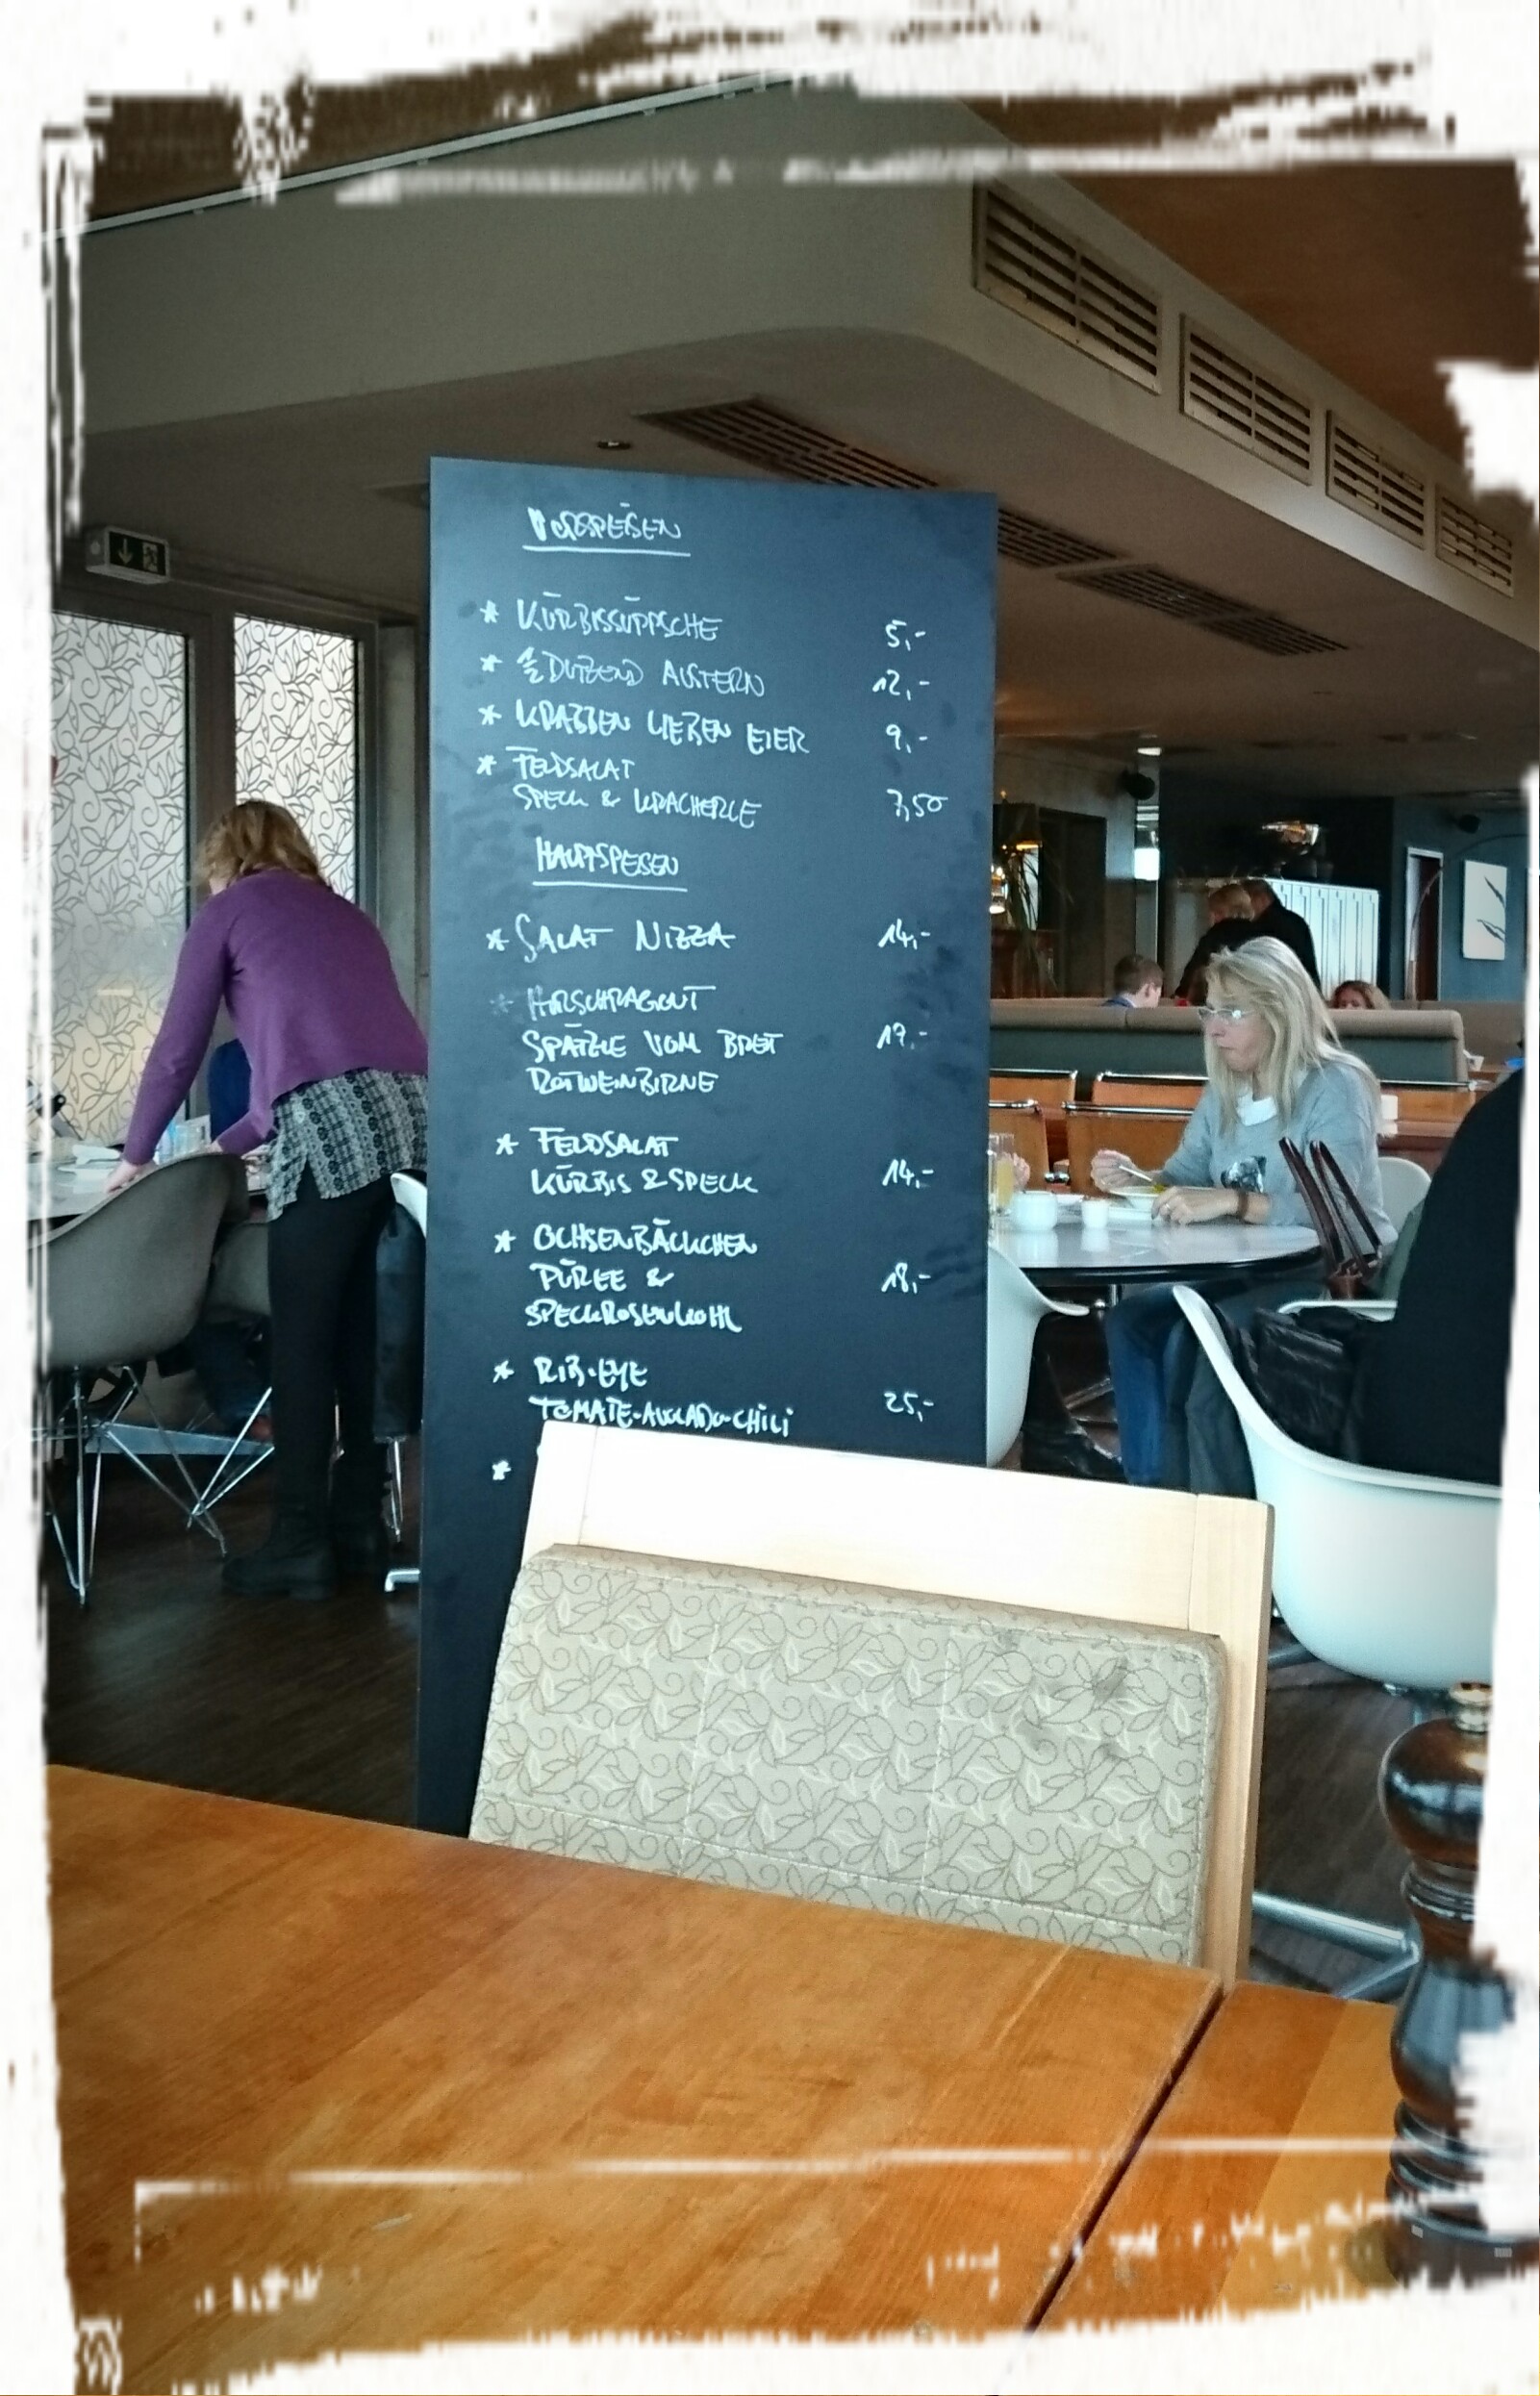 VORSPEISEN
* KÜRBISSÜPPSCHE 5,-
* ½ DUTZEND AUSTERN 12,-
* KRABBEN LIEBEN EIER 9,-
* FELDSALAT
SPECK & KRACHERLE 7,50
HAUPTSPEISEN
* SALAT NIZZA 14,-
* HIRSCHRAGOUT
SPÄTZLE VOM BRET 17,-
ROTWEINBIRNE
* FELDSALAT
KÜRBIS & SPECK 14,-
* OCHSENBÄCKCHEN
PÜREE & 18,-
SPECKROSENKOHL
* RIB-EYE
TOMATE-AVOCADO-CHILI 25,-
*